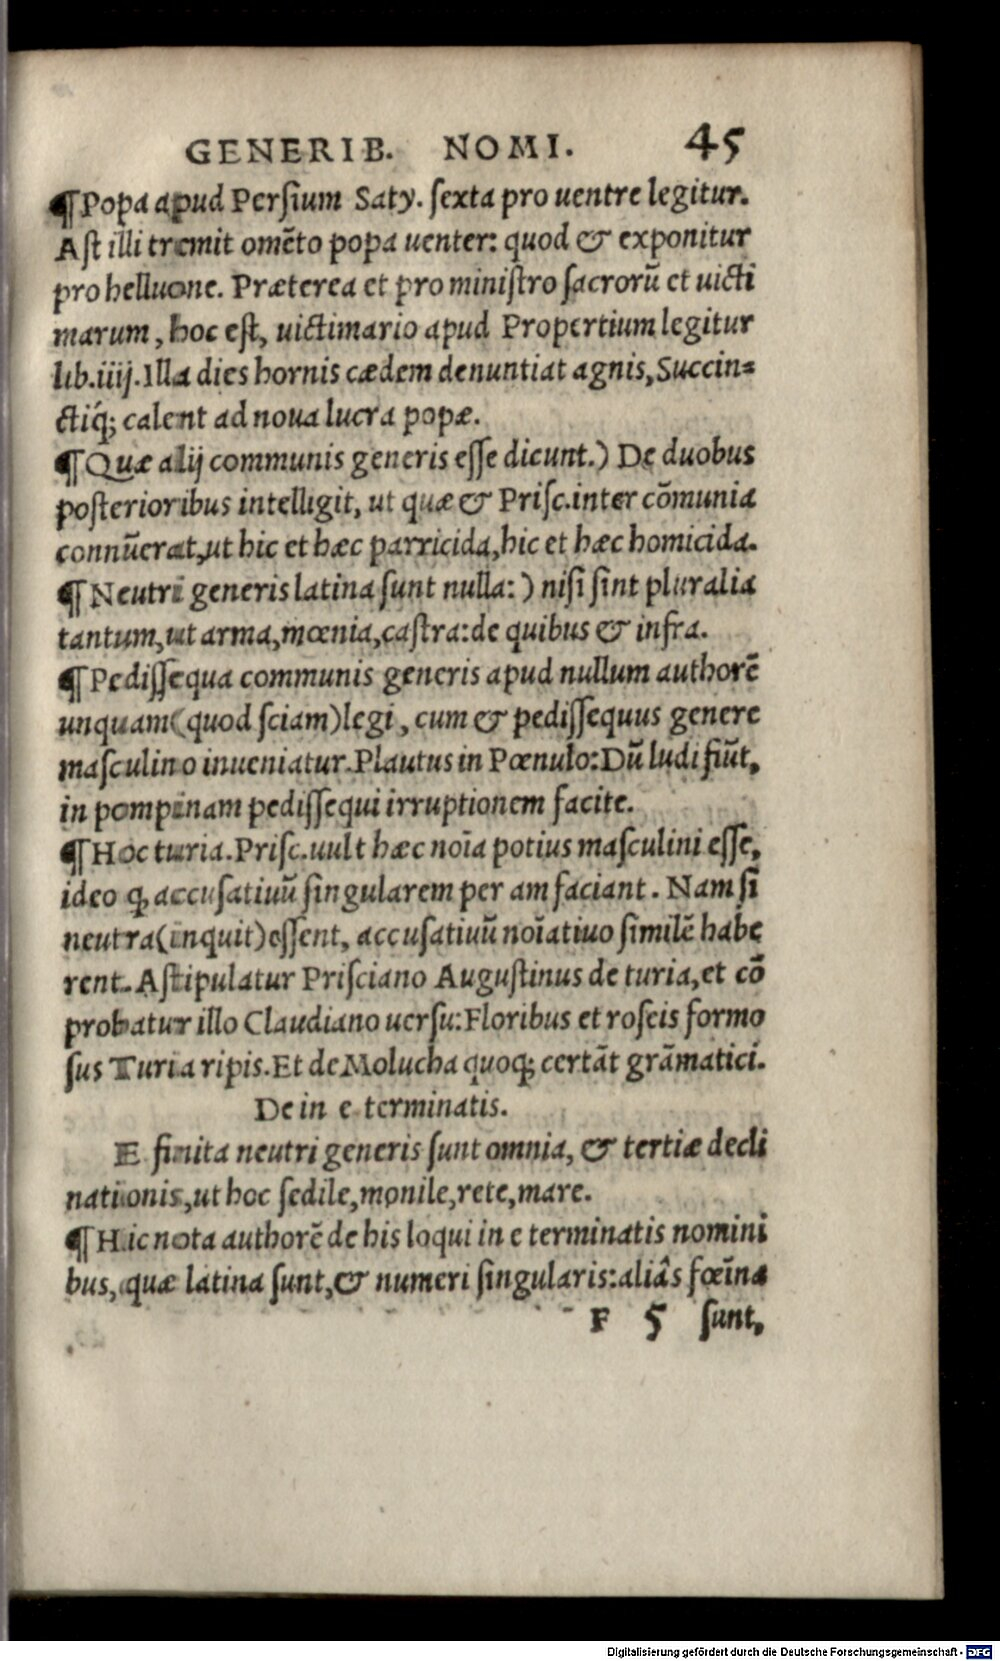 GENERIB. NOMI. 45
¶Popa apud Perſium Saty. ſexta pro uentre legitur.
Aſt illi tremit omẽto popa uenter: quod & exponitur
pro helluone. Præterea et pro miniſtro ſacrorũ et uicti
marum, hoc eſt, uictimario apud Propertium legitur
lib.iiij. Illa dies hornis cædem denuntiat agnis, Succin=
ctiq́; calent ad noua lucra popæ.
¶Quæ alij communis generis eſſe dicunt.) De duobus
poſterioribus intelligit, ut quæ & Priſc. inter cõmunia
connũerat, ut hic et hæc parricida, hic et hæc homicida.
¶Neutri generis latina ſunt nulla: ) niſi ſint pluralia
tantum, ut arma, mœnia, caſtra: de quibus & infra.
¶Pediſſequa communis generis apud nullum authorẽ
unquam (quod ſciam) legi, cum & pediſſequus genere
maſculino inueniatur. Plautus in Pœnulo: Dũ ludi fiũt,
in pompinam pediſſequi irruptionem facite.
¶Hoc turia. Priſc. uult hæc noĩa potius maſculini eſſe,
ideo ꝙ accuſatiuũ ſingularem per am faciant. Nam ſi
neutra (inquit) eſſent, accuſatiuũ noĩatiuo ſimilẽ habe
rent. Aſtipulatur Priſciano Auguſtinus de turia, et cõ
probatur illo Claudiano uerſu: Floribus et roſeis formo
ſus Turia ripis. Et de Molucha quoq; certãt grãmatici.
De in e terminatis.
E finita neutri generis ſunt omnia, & tertiæ decli
nationis, ut hoc ſedile, monile, rete, mare.
¶Hic nota authorẽ de his loqui in e terminatis nomini
bus, quæ latina ſunt, & numeri ſingularis: aliâs fœĩna
F 5 ſunt,
Digitalisierung gefördert durch die Deutsche Forschungsgemeinschaft - DFG